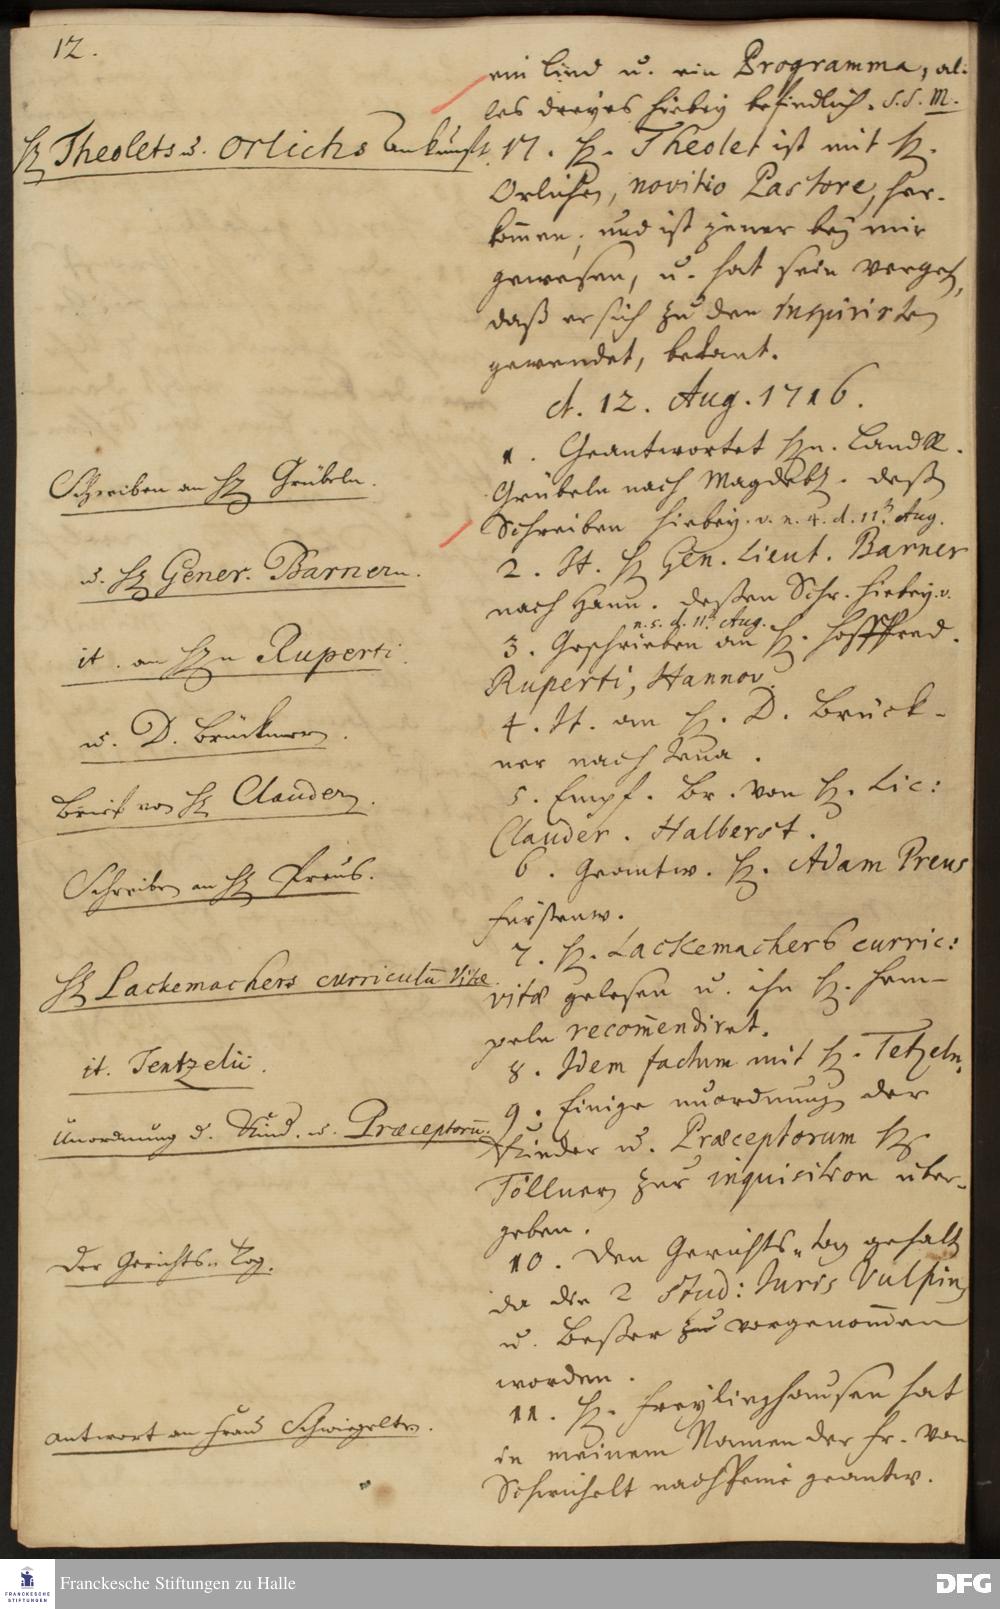 12.
ein Lied u. ein Programma, al-
les dreyes hiebey befindlich. S.S. M.
H. Theolets u. Orlichs Ankunft.
17. H. Theolet ist mit H.
Orlichen, novitio Pastore, her-
kommen; und ist jener bey mir
gewesen, u. hat sein vergehen,
daß er sich zu den Inspirirten
gewendet, bekant.
d. 12. Aug. 1716.
Schreiben an H. Grübeln.
1. Geantwortet H. LandR.
Grübeln nach Magdeb. deßen
Schreiben hiebey. v. n. 4. d. 11. Aug.
u. H. Gener. Barnern.
2. It. H. Gen. Lieut. Barner
nach Hann. deßen Schr. hiebey. v.
n. 5. d. 11. Aug.
it. an Hn Ruperti.
3. Geschrieben an H. Hoffpred.
Ruperti, Hannov.
u. D. Brücknern.
4. It. an H. D. Brück-
ner nach Jena.
Brief von H. Claudern.
5. Empf. Br. von H. Lic:
Clauder. Halberst.
Schreiben an H. Preus.
6. Geantw. H. Adam Preus
Fürstenw.
H. Lackemachers curriculū vitæ.
7. H. Lackemachers curric:
vitæ gelesen u. ihn H. Hem-
peln recom̄endiret.
it. Tentzelii.
8. Idem factum mit H. Tetzeln.
Unordnung d. Kind. u. Præceptorū.
9. Einige unordnung der
Kinder u. Præceptorum H.
Töllnern zur inquisition über-
geben.
Der Gerichts-Tag.
10. Den Gerichts-tag gehalten
da die 2 Stud: Juris Vulpin
u. Beßer zu vorgenom̄en
worden.
Antwort an Frau Schwiegelten.
11. H. Freylinghausen hat
in meinem Namen der Fr. von
Schwichelt nach Peine geantw.
Franckesche Stiftungen zu Halle
FRANCKESCHE
STIFTUNGEN
DFG